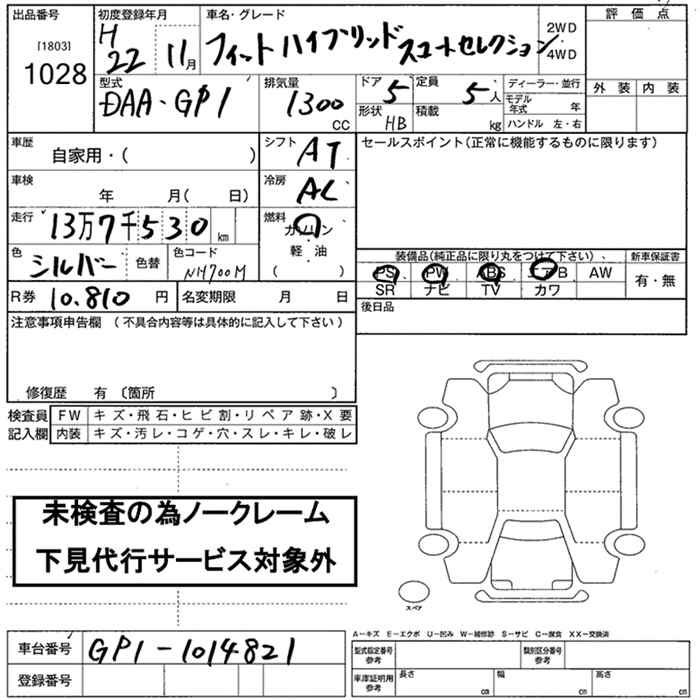 出品番号
[1803]
1028
初度登録年月
H
22 11月
車名・グレード
フィットハイブリッド スマートセレクション
2WD
4WD
評価点
外装 内装
型式
DAA-GP1
排気量
1300
CC
ドア 5
定員 5人
形状 HB
積載 kg
ディーラー・並行
モデル年式 年
ハンドル 左・右
車歴
自家用・( )
シフト AT
セールスポイント(正常に機能するものに限ります)
車検
年 月( 日)
冷房 AC
走行 13万7千530km
燃料
ガソリン
軽・油
( )
色 シルバー
色替
色コード
NH700M
装備品(純正品に限り丸をつけて下さい)、
新車保証書
PS PW ABS エアB AW
SR ナビ TV カワ
有・無
R券 10.810 円
名変期限 月 日
後日品
注意事項申告欄 (不具合内容等は具体的に記入して下さい)
修復歴 有 〔箇所 〕
検査員
記入欄
FW キズ・飛石・ヒビ割・リペア跡・X要
内装 キズ・汚レ・コゲ・穴・スレ・キレ・破レ
未検査の為ノークレーム
下見代行サービス対象外
スペア
A−キズ E−エクボ U−凹み W−補修跡 S−サビ C−腐食 XX−交換済
車台番号 GP1-1014821
登録番号
型式指定番号
参考
類別区分番号
参考
車庫証明用
参考
長さ cm
幅 cm
高さ cm